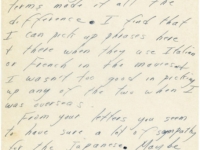 terms made it all the
difference. I find that
I can pick up phrases here
& there when they use Italian
or French in the movies &
I wasn't too good in picking
up any of the two when I
was overseas.
From your letters you seem
to have sure a lot of sympathy
for the Japanese. Maybe